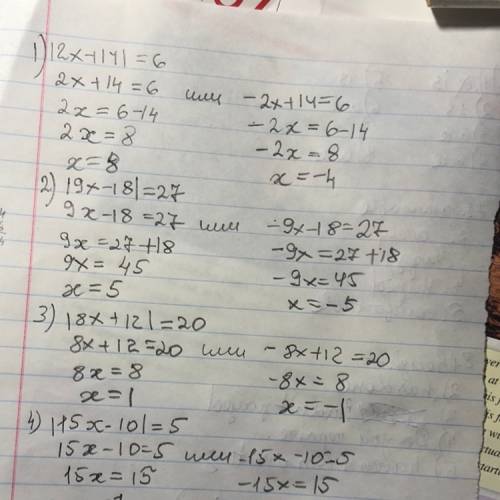 1) |2x+14|=6
2x+14=6 или -2x+14=6
2x=6-14 -2x=6-14
2x=8 -2x=8
x=8 x=-4
2) |9x-18|=27
9x-18=27 или -9x-18=27
9x=27+18 -9x=27+18
9x=45 -9x=45
x=5 x=-5
3) |8x+12|=20
8x+12=20 или -8x+12=20
8x=8 -8x=8
x=1 x=-1
4) |15x-10|=5
15x-10=5 или -15x-10=5
15x=15 -15x=15